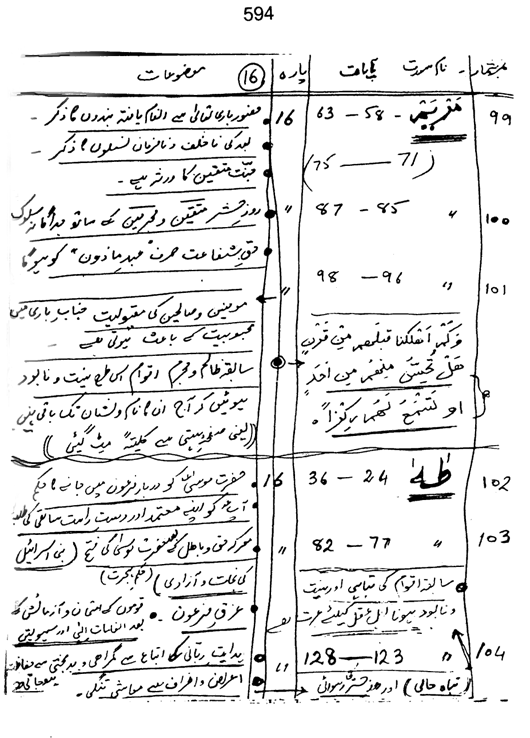 594
نمبر شمار - نام سورت آیات پارہ (16) موضوعات
99 مریم - 58 — 63 16 حضور باری تعالیٰ سے انعام یافتہ بندوں کا ذکر -
بعد کی ناخلف و نافرمان نسلوں کا ذکر -
(71 — 75) جنّت متقین کا ورثہ ہے -
100 " 85 — 87 " روزِ حشر متقین و مجرمین کے ساتھ جداگانہ سلوک
حقِ شفاعت صرف "عبد ماذون" کو ہو گا
101 " 96 — 98 " مومنین و صالحین کی مقبولیت جناب باری میں
محبوبیت کے باعث ہوتی ہے -
وَكَمْ أَهْلَكْنَا قَبْلَهُم مِّن قَرْنٍ
هَلْ تُحِسُّ مِنْهُم مِّنْ أَحَدٍ
أَوْ تَسْمَعُ لَهُمْ رِكْزًا
سابقہ ظالم و مجرم اقوام اس طرح نیست و نابود
ہوئیں کہ آج ان کا نام و نشان تک باقی نہیں
(یعنی صفحہ ہستی سے کلیتہً مٹ گئیں)
102 طٰهٰ 24 — 36 16 حضرت موسیٰ کو دربار فرعون میں جانے کا حکم
آپ کو اپنے معتمد اور دست راست ساتھی کی طلب
103 " 77 — 82 " معرکہ حق و باطل کے حضرت موسیٰ کی فتح (بنی اسرائیل
کی نجات و آزادی) (حکم ہجرت)
سابقہ اقوام کی تباہی اور نیست
و نابود ہونا اہل عقل کیلئے عبرت ہے
غرق فرعون - قوموں کی امتحان و آزمائش کے
بعد انعامات الٰہی اور
104 " 123 — 128 " ہدایت ربانی کا اتباع سے گمراہی و بدبختی سے حفاظت
ہو جاتی ہے
(تباہ حالی) اور روز حشر کی رسوائی اعراض و انحراف سے معاشی تنگی -